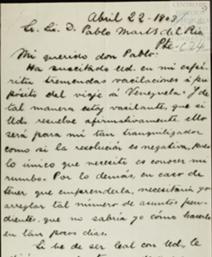 Abril 22-1909
Sr. Lic. D. Pablo Martz del Río
Pte.
Mi querido don Pablo:
Ha suscitado Ud. en mi espí-
ritu tremendas vacilaciones a pro-
pósito del viaje á Venezuela. Y de
tal manera estoy vacilante, que si
Ud resuelve afirmativamente ello
será para mi tan tranquilizador
como si la resolución es negativa, pues
lo único que necesito es conocer mi
rumbo. Por lo demás, en caso de
tener que emprenderla, necesitaría yo
arreglar tal número de asuntos pen-
dientes, que no sabría yo cómo hacerlo
en tan pocos días.
Si he de ser leal con Ud., le